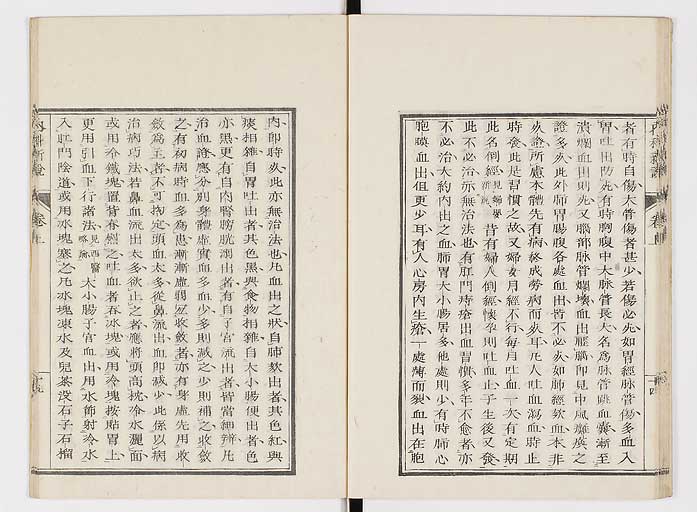 者有時自傷大管傷者甚少若傷必死如胃經脉管傷多血入
胃吐出防死有時胸腹中大脉管長大名為脉管跳血囊漸至
潰爛血出則死又腦部脉管爛壞血出壓腦即見中風癱瘓之
證多死此外肺胃腸腹各處血出皆不必死如肺經欬血本非
死證所慮本體先有病終成勞病而死耳凡人吐血瀉血時止
時發此是習慣之故又婦女月經不行每月吐血一次有定期
此名倒經見婦嬰新說昔有婦人倒經懷孕則吐血止子生後又發
此不必治亦無治法也有肛門痔瘡出血習慣多年不愈者亦
不必治大約內出之血肺胃大小腸居多他處則少有時肺心
胞膜血出但更少耳有人心房內生瘡一處薄而裂血出在胞
內即時死此亦無治法也凡血出之狀自肺欬出者其色紅與
痰相雜自胃吐出者其色黑與食物相雜自大小腸便出者色
亦黑更有自內腎膀胱溺出者有自子宮流出者皆當細辨凡
治血證應分別身體虛實血多血少多則減之少則補之收斂
之有初病時血多為患漸漸虛弱宜收斂者亦有身虛先用收
斂為主者不可拘定頭血太多從鼻流出血即減少此係以病
治病巧法若鼻血流出太多欲止之者應將頭高枕冷水灑面
或用冷鐵塊置背脊經之吐血者吞冰塊或用冷塊按貼胃上
更用引血下行諸法見西醫略論大小腸子宮血出用水節射冷水
入肛門陰道或用冰塊塞之凡冰塊凍水及兒茶沒石子石榴